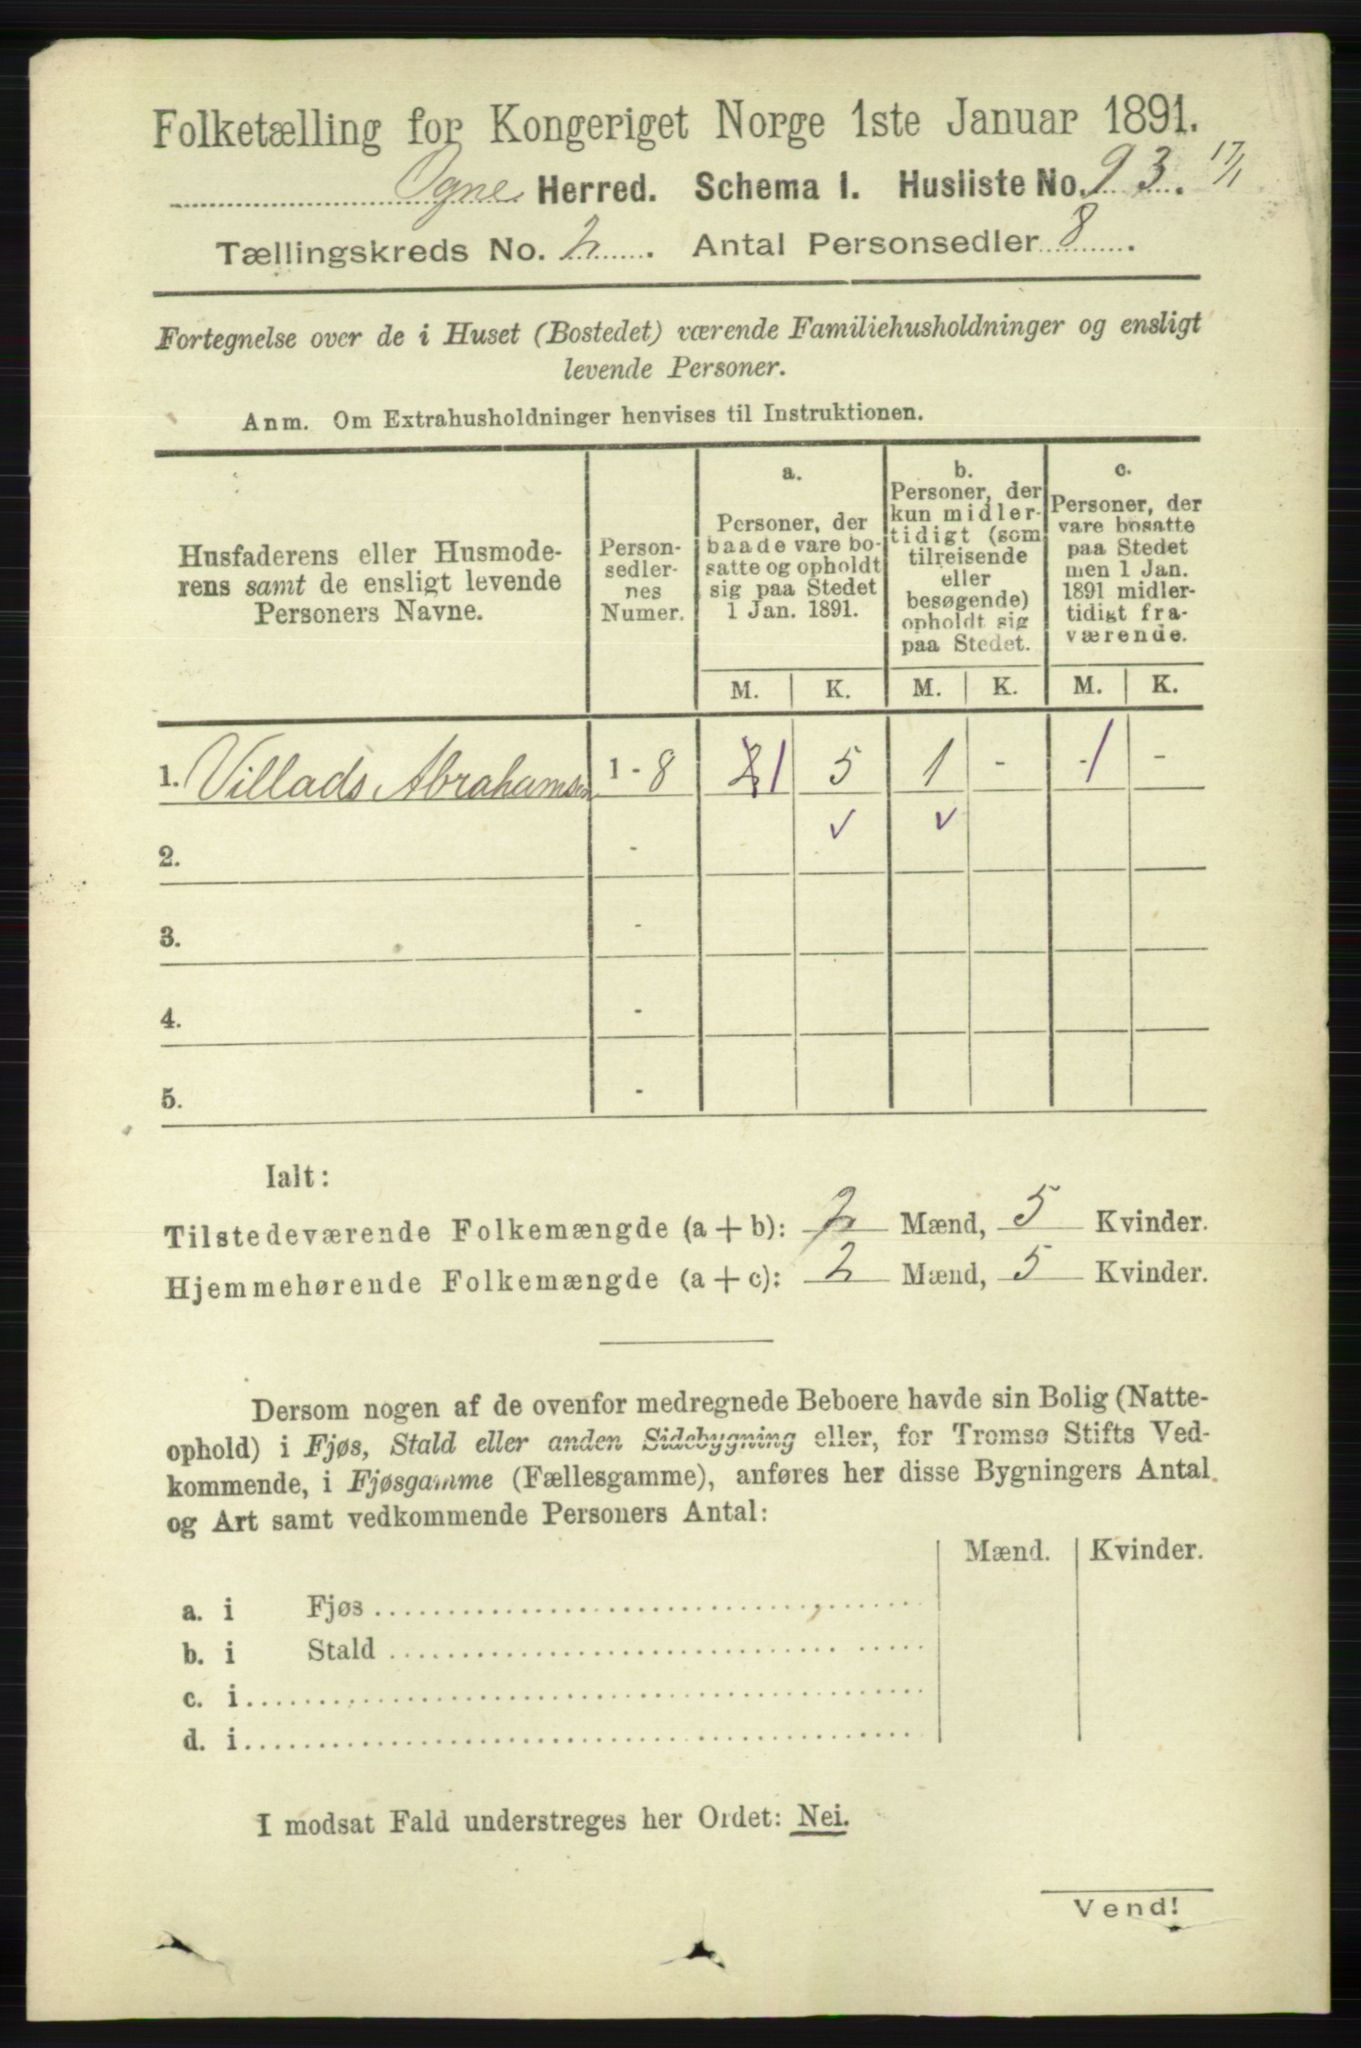 Folketælling for Kongeriget Norge 1ste Januar 1891.
Ogne Herred. Schema 1. Husliste No. 93. 17/1
Tællingskreds No. 2. Antal Personsedler 8.
Fortegnelse over de i Huset (Bostedet) værende Familiehusholdninger og ensligt
levende Personer.
Anm. Om Extrahusholdninger henvises til Instruktionen.
Husfaderens eller Husmode-
rens samt de ensligt levende
Personers Navne.
Person-
sedler-
nes
Numer.
a.
Personer, der
baade vare bo-
satte og opholdt
sig paa Stedet
1 Jan. 1891.
b.
Personer, der
kun midler-
tidigt (som
tilreisende
eller
besøgende)
opholdt sig
paa Stedet.
c.
Personer, der
vare bosatte
paa Stedet
men 1 Jan.
1891 midler-
tidigt fra-
værende.
M. K. M. K. M. K.
1. Villads Abrahamsen 1 - 8 2 1 5 1 - - 1 -
✓ ✓
2. -
3. -
4. -
5. -
Ialt:
Tilstedeværende Folkemængde (a + b): 2 Mænd, 5 Kvinder.
Hjemmehørende Folkemængde (a + c): 2 Mænd, 5 Kvinder.
Dersom nogen af de ovenfor medregnede Beboere havde sin Bolig (Natte-
ophold) i Fjøs, Stald eller anden Sidebygning eller, for Tromsø Stifts Ved-
kommende, i Fjøsgamme (Fællesgamme), anføres her disse Bygningers Antal
og Art samt vedkommende Personers Antal:
Mænd. Kvinder.
a. i Fjøs
b. i Stald
c. i
d. i
I modsat Fald understreges her Ordet: Nei.
Vend!